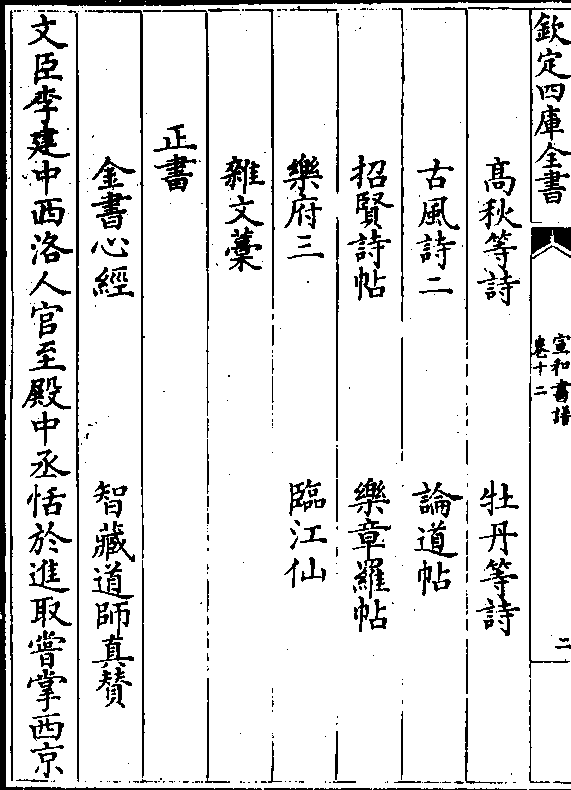 欽定四庫全書
宣和書譜
卷十二
二
高秋等詩　牡丹等詩
古風詩二　論道帖
招賢詩帖　樂章羅帖
樂府三　臨江仙
雜文藁
正書
金書心經　智藏道師真賛
文臣李建中西洛人官至殿中丞恬於進取嘗掌西京